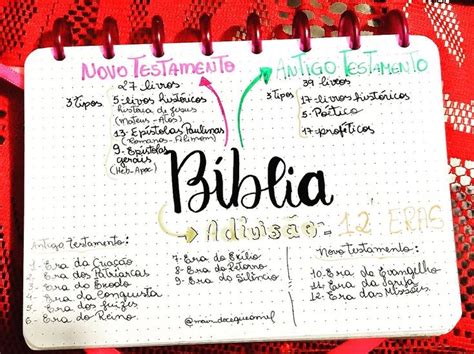 NOVO TESTAMENTO
27 livros
3 tipos
5-livros históricos
história de Jesus
(Mateus - Atos)
13- Epístolas Paulinas
(Romanos - Filimom)
9- Epístolas
gerais
(Heb-Apoc)
ANTIGO TESTAMENTO
39 livros
3 tipos
17-livros históricos
5-Poético
17-proféticos
Bíblia
A divisão - 12 ERAS
Antigo testamento:
1 - Era da Criação
2 - Era dos Patriarcas
3 - Era do Êxodo
4 - Era da Conquista
5 - Era dos juízes
6 - Era do Reino
7- Era do Exílio
8- Era do Retorno
9- Era do Silêncio
Novo testamento:
10. Era do Evangelho
11- Era da Igreja
12. Era das Missões